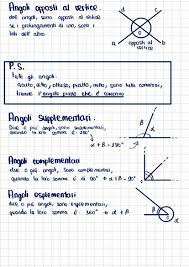 Angoli opposti al vertice.
due angoli, sono opposti al vertice
se i prolungamenti di uno, sono i
lati dell'altro
α
β
opposti al
vertice
P.S.
tutti gli angoli:
retto, ottuso, piatto, sono tutti convessi,
tranne l'angolo che è concavo
Angoli supplementari:
due o più angoli, sono supplementari,
quando la loro somma è 180°
α + β = 180°
β
α
Angoli complementari
due o più angoli, sono complementari,
quando la loro somma è di 90° → α + β = 90°
Angoli esplementari
due o più angoli, sono esplementari,
quando la loro somma è: 360° → α + β
β
α